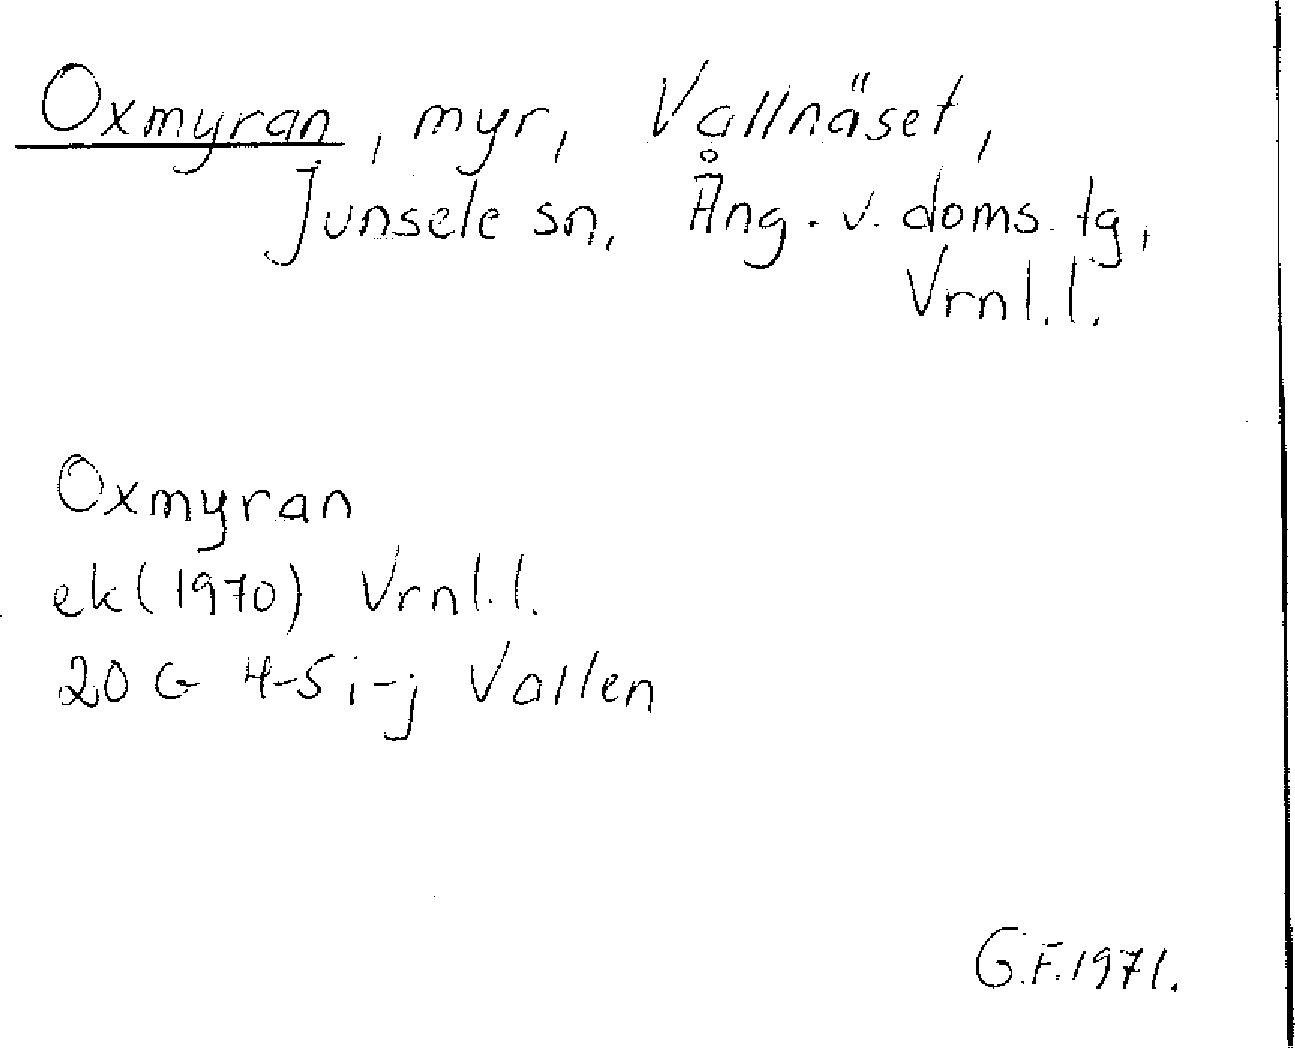 Oxmyran, myr, Vallnäset,
Junsele sn, Ång. v. doms. tg,
Vrnl.l.
Oxmyran
ek(1970) Vrnl.l.
20 G 4-5 i-j Vallen
G.F.1971.